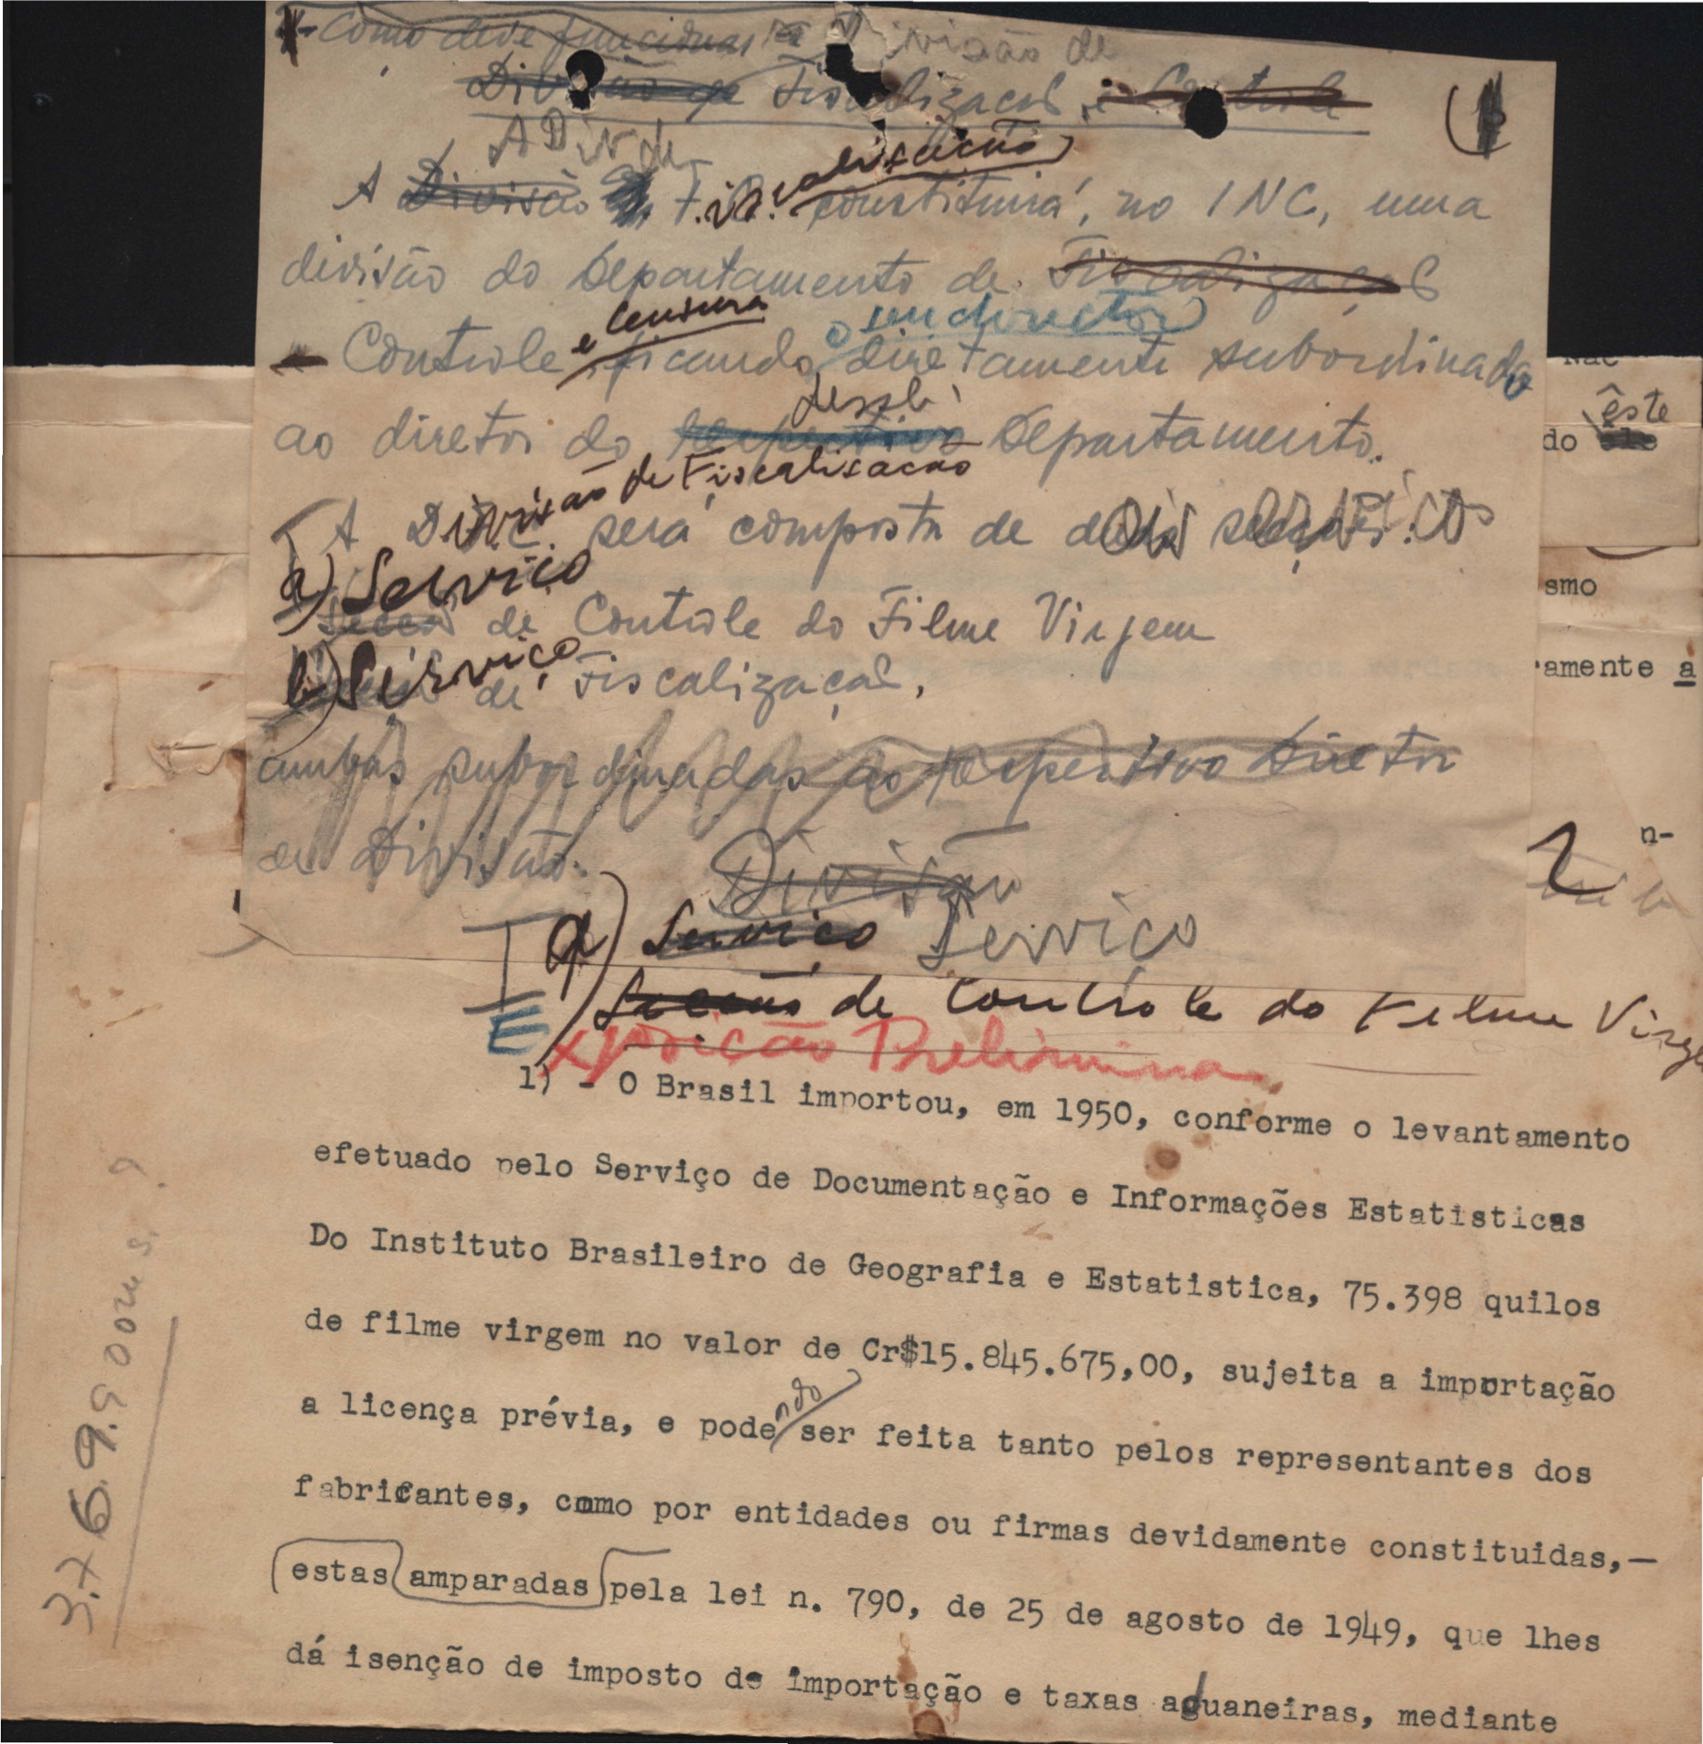 Como deve funcionar a Divisão de
Divisão de Fiscalização e Controle
A Div de
fiscalisacão
A Divisão constituirá, no INC, uma
divisão do Departamento de Fiscalização
e Censura o seu director
Controle, ficando diretamente subordinado
desse
ao diretor do respectivo Departamento.
Divisão de Fiscalisacao
A D.F.C. será composta de dois serviços
a) Serviço
Secção de Controle do Filme Virgem
b) Serviço
de Fiscalização,
ambas subordinadas ao respectivo Diretor
de Divisão.
Divisão
I a) Serviço Serviço
Secção de Controle do Filme Virgem
Exposição Preliminar
1) - O Brasil importou, em 1950, conforme o levantamento
efetuado pelo Serviço de Documentação e Informações Estatisticas
Do Instituto Brasileiro de Geografia e Estatistica, 75.398 quilos
de filme virgem no valor de Cr$15.845.675,00, sujeita a importação
a licença prévia, e podendo ser feita tanto pelos representantes dos
fabricantes, como por entidades ou firmas devidamente constituidas,—
estas amparadas pela lei n. 790, de 25 de agosto de 1949, que lhes
dá isenção de imposto de importação e taxas aduaneiras, mediante
êste
do ele
smo
ramente a
n-
2